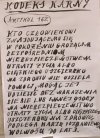 KODEKS KARNY
ARTYKUŁ 162
KTO CZŁOWIEKOWI
ZNAJDUJĄCEMU SIĘ
W POŁOŻENIU GROŻĄCYM
BEZPOŚREDNIM
NIEBEZPIECZEŃSTWEM
UTRATY ŻYCIA ALBO
CIĘŻKIEGO USZCZERBKU
NA ZDROWIU NIE UDZIELA
POMOCY, MOGĄC JEJ
UDZIELIĆ BEZ NARAŻENIA
SIEBIE LUB INNEJ OSOBY
NA NIEBEZPIECZEŃSTWO
UTRATY ŻYCIA ALBO
CIĘŻKIEGO USZCZERBKU
NA ZDROWIU, PODLEGA
KARZE POZBAWIENIA
WOLNOŚCI DO LAT 3.